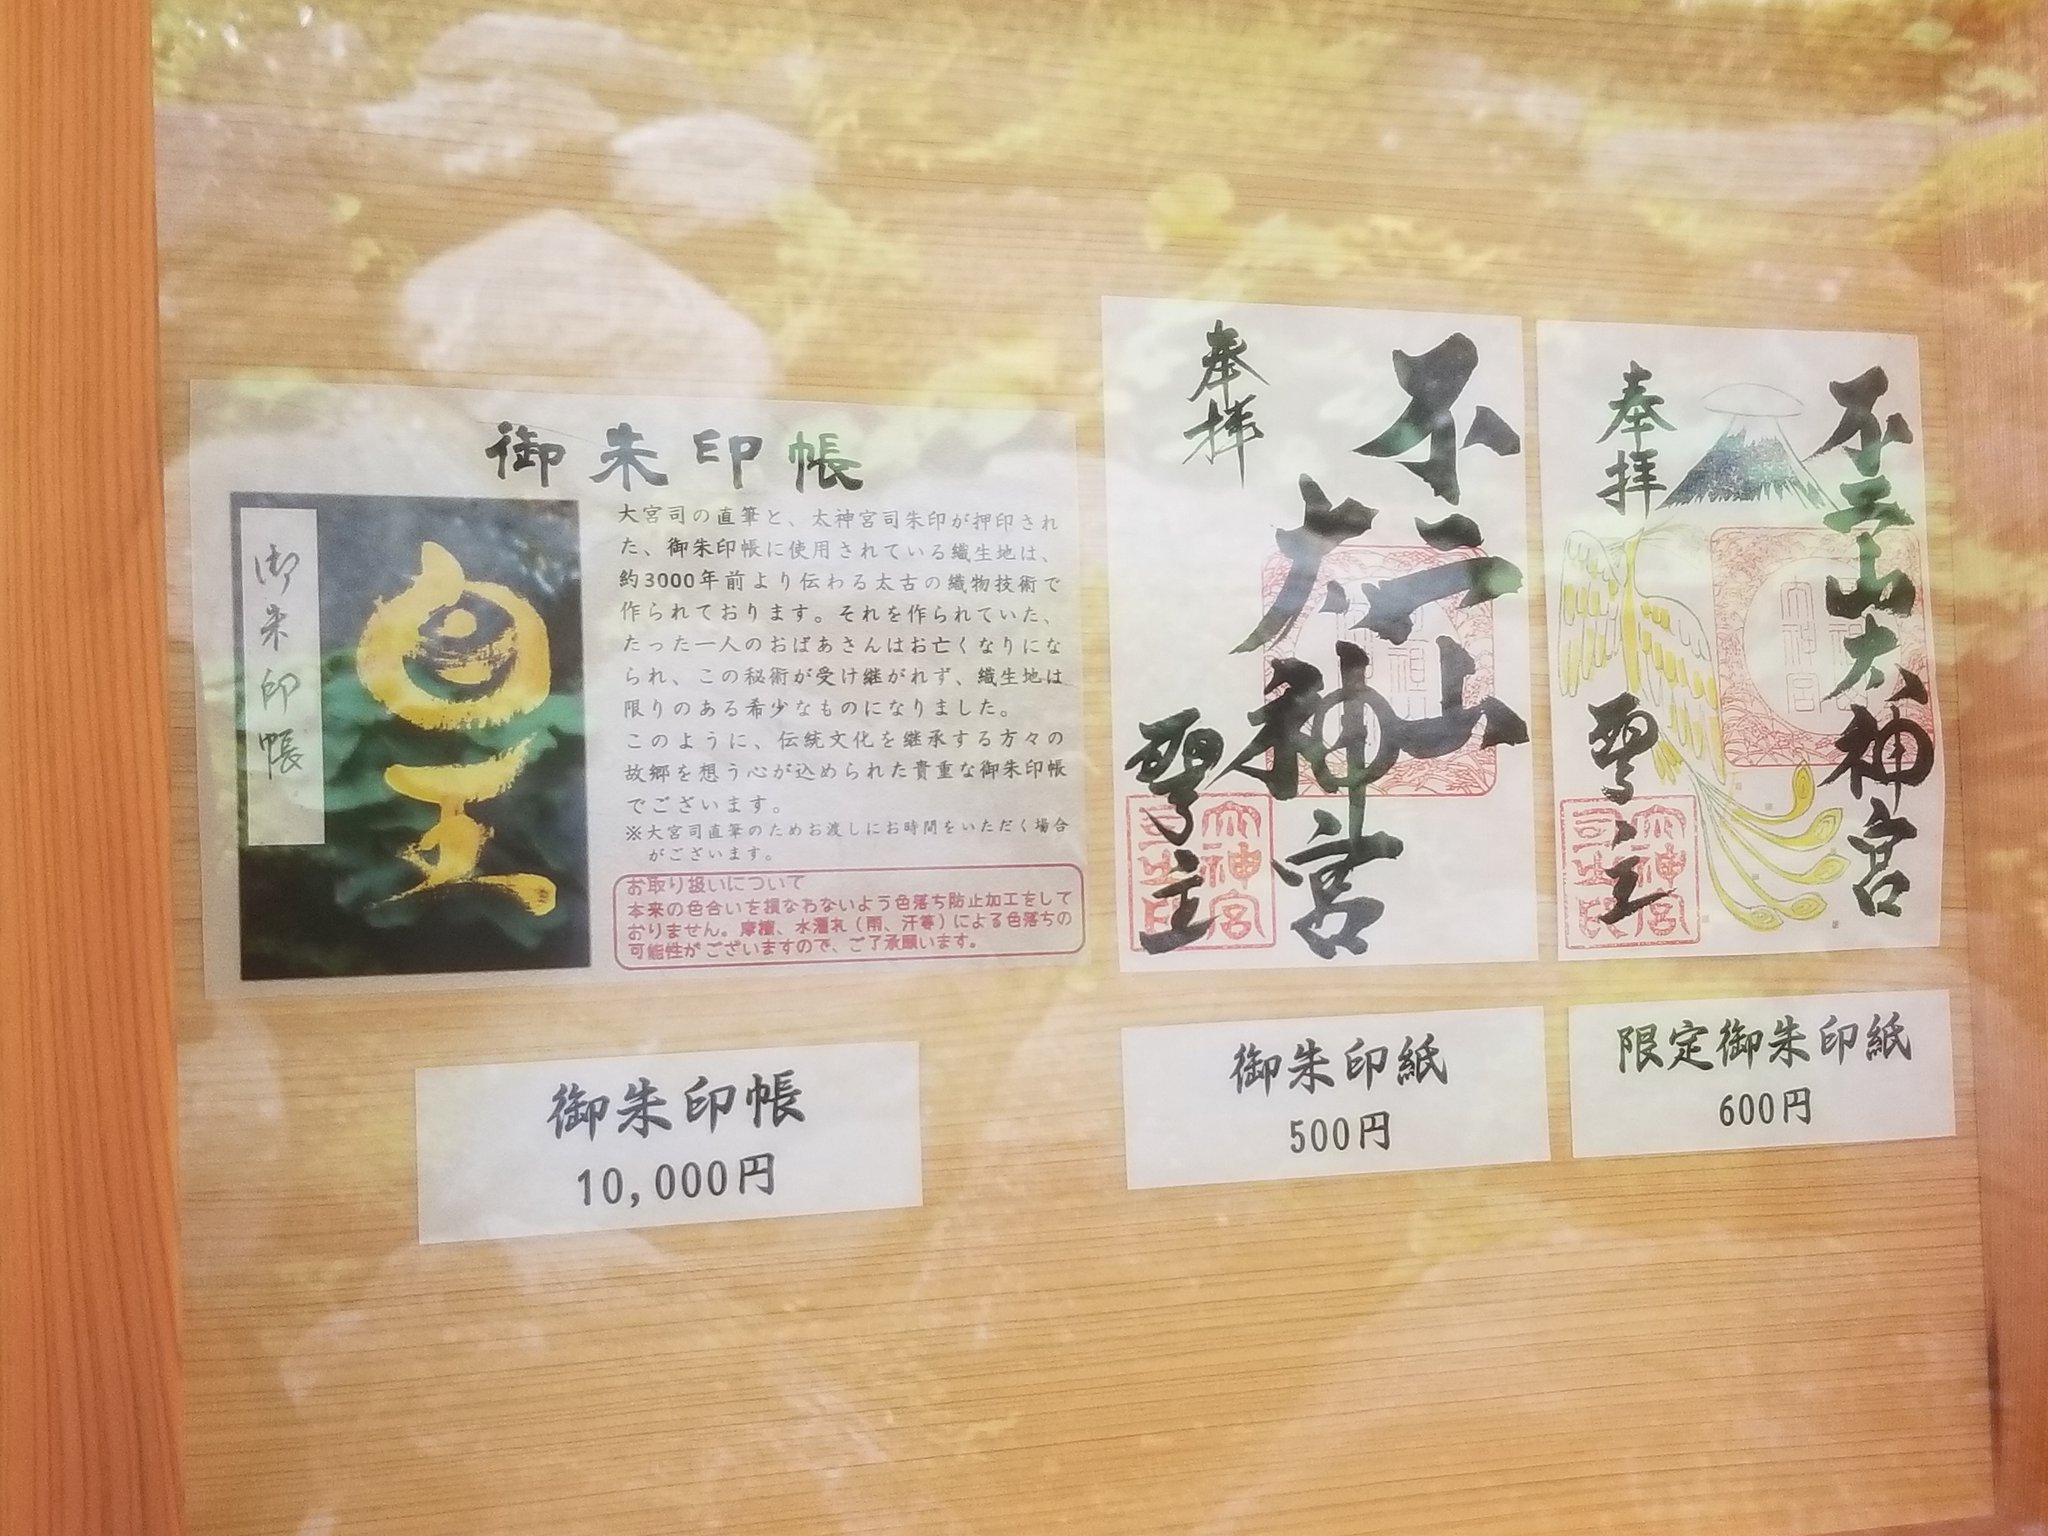 御朱印帳
御朱印帳
皇
大宮司の直筆と、太神宮司朱印が押印され
た、御朱印帳に使用されている織生地は、
約3000年前より伝わる太古の織物技術で
作られております。それを作られていた、
たった一人のおばあさんはお亡くなりにな
られ、この秘術が受け継がれず、織生地は
限りのある希少なものになりました。
このように、伝統文化を継承する方々の
故郷を想う心が込められた貴重な御朱印帳
でございます。
※大宮司直筆のためお渡しにお時間をいただく場合
がございます。
お取り扱いについて
本来の色合いを損なわないよう色落ち防止加工をして
おりません。摩擦、水濡れ（雨、汗等）による色落ちの
可能性がございますので、ご了承願います。
御朱印帳
10,000円
不二山
太神宮
奉拝
聖主
御朱印紙
500円
不二山太神宮
奉拝
聖主
限定御朱印紙
600円